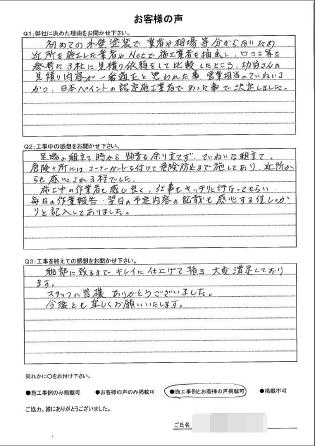 お客様の声
Q1:弊社に決めた理由をお聞かせ下さい。
初めての外壁塗装で業者や相場等分からないため
近所を施工した業者やNetで施工業者を抽出し、口コミ等を
参考に3社に見積り依頼をして比較したところ、
見積り内容が一番適正と思われた事、営業担当のていねいさ
か、日本ペイントの認定施工業者であった事で決定しました。
Q2:工事中の感想をお聞かせ下さい。
足場の組立て時から物音を余り立てず、ていねいな組立て、
危険ヶ所にはコーナーガードも付けて危険防止まで施しており、近所か
らも感心される程でした。
施工中の作業者も感じ良く、仕事もキッチリと行なってもらい
毎日の作業報告・翌日の予定内容の も感心する位しっか
りと記入してありました。
Q3:工事を終えての感想をお聞かせ下さい。
細部に致るまでキレイに仕上げて頂き大変満足しており
ます。
スタッフの皆様ありがとうございました。
今後とも宜しくお願いいたします。
何れかに○をお付け下さい。
●施工事例のみ掲載可 ●お客様の声のみ掲載可 ●施工事例とお客様の声掲載可 ●掲載不可
ご協力、誠にありがとうございました。
ご氏名